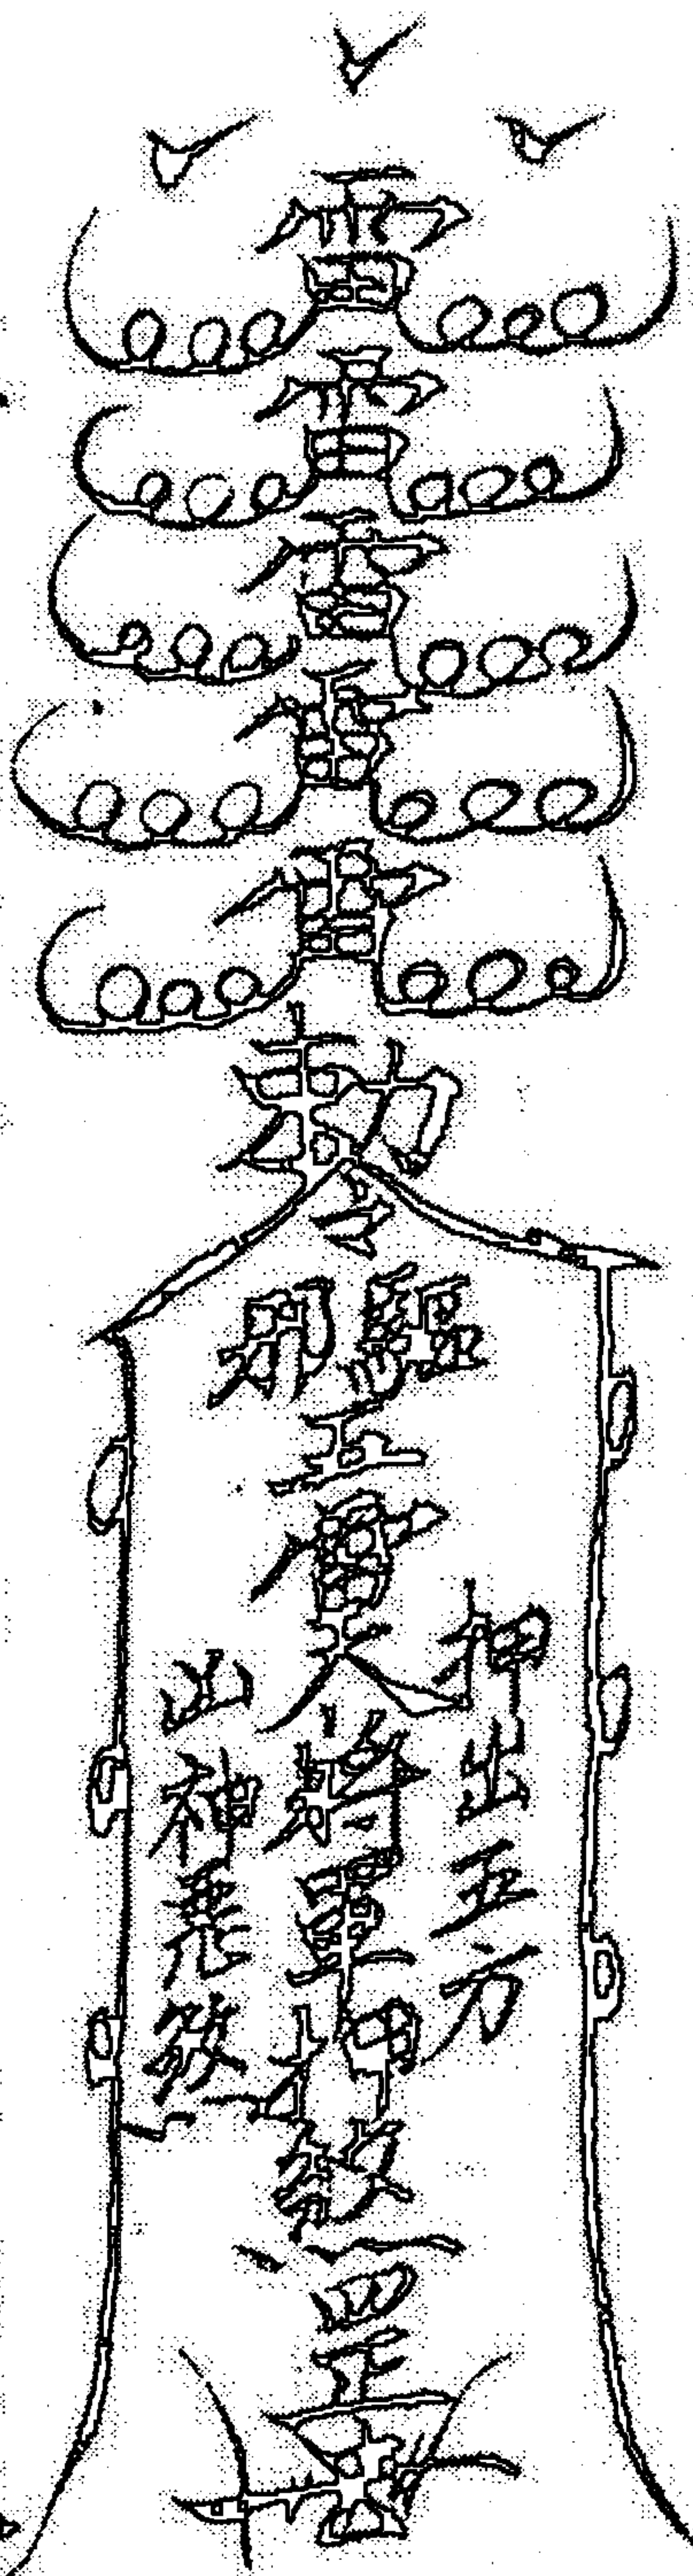 雷雷雷雷雷勅令
驅邪
五雷大將軍押煞罡
押出五方
山神飛煞